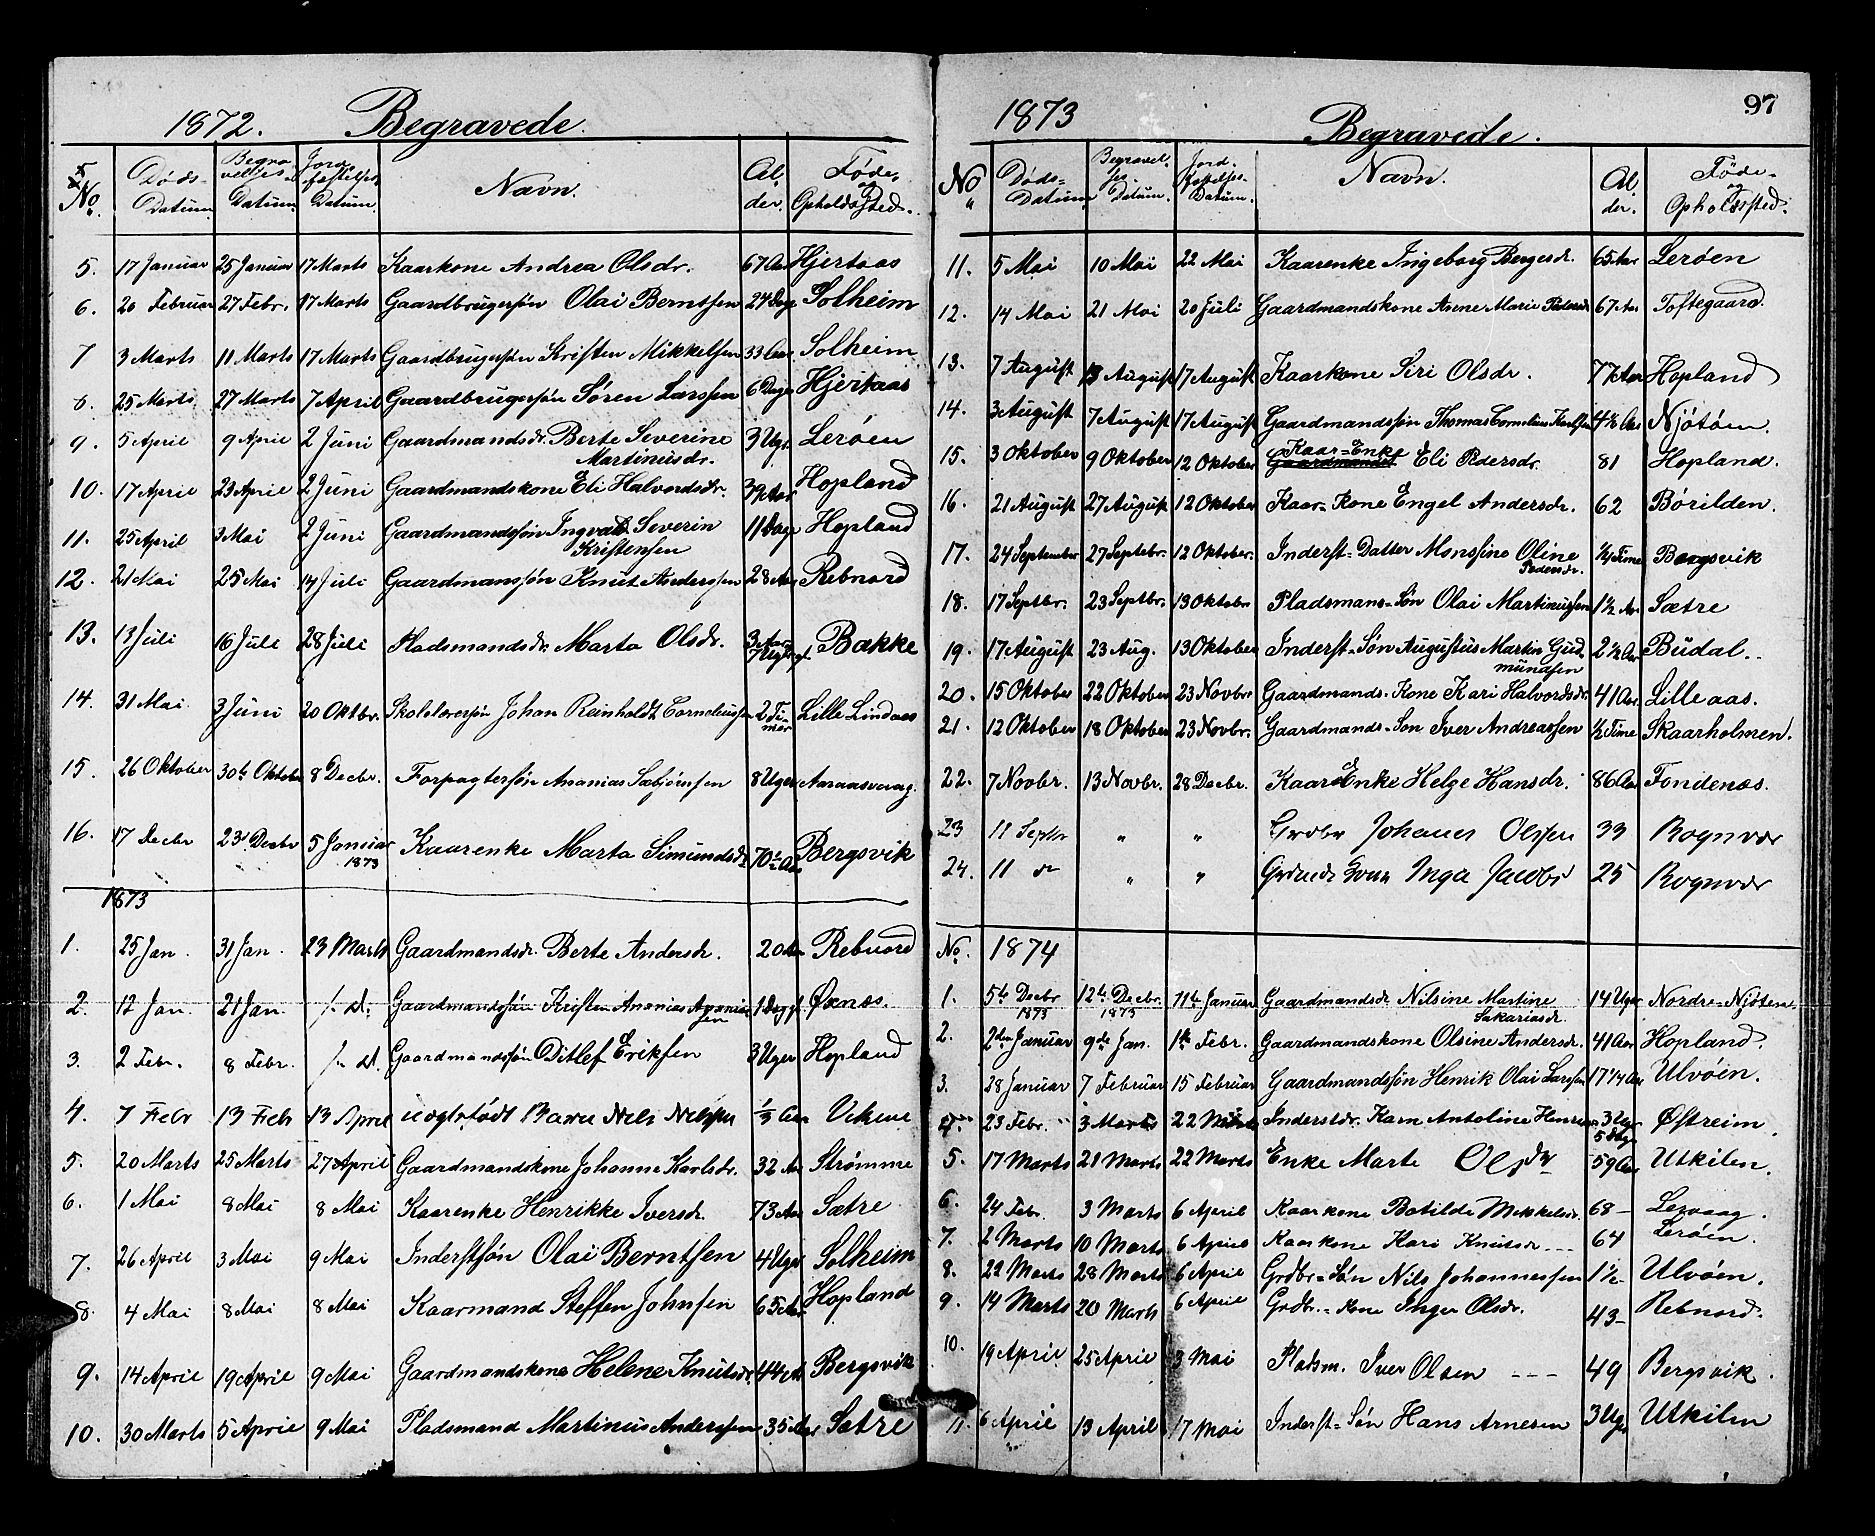 1872. Begravede.
No. Døds- Datum Begravelses- Datum. Jordfæstelses Datum. Navn. Alder. Føde- og Opholdssted.
5. 17 Januar 25 Januar 17 Marts Kaarkone Andrea Olsdr. 67 Aar Hjertaas
6. 20 Februar 27 Febr. 17 Marts Gaardbrugersøn Olai Berntsen 24 Dage Solheim
7 3 Marts 11 Marts 17 Marts Gaardbrugersøn Kristen Mikkelsen 33 Aar Solheim
8. 25 Marts 27 Marts 7 April Gaardbrugersøn Søren Larssen 6 Dage Hjertaas
9. 5 April 9 April 2 Juni Gaardmandsdr. Berte Severine 3 Ugr Lerøen
Martinusdr.
10. 17 April 23 April 2 Juni Gaardmandskone Eli Halvordsdr. 39 Aar Hopland
11. 25 April 3 Mai 2 Juni Gaardmandssøn Ingvald Severin 11 Dage Hopland
Kristensen
12. 21 Mai 25 Mai 14 Juli Gaardmanssøn Knut Anderssen 28 Aar Rebnord
13. 13 Juli 16 Juli 28 Juli Pladsmandsdr. Marta Olsdr. Bække
14. 31 Mai 3 Juni 20 Oktbr. Skolelærersøn Johan Reinholdt Corneliussen 2 Timer Lille Lindaas
15. 26 Oktober 30te Oktober 8 Decbr. Forpagtersøn Ananias Sæbjørnsen 8 Uger Aaraasvaag
16. 17 Decbr 23de Decbr 5 Januar Kaarenke Marta Simundsdr 70½ Aar Bergsvik
1873
1873
1. 25 Jan 31 Jan. 23 Marts Gaardmandsdr. Berte Andersdr. 20 Aar Rebnord
2. 12 Jan. 21 Jan. Gaardmandssøn Kristen Ananias Ananias- 1 Døgn Øxnæs.
sen
3. 2 Febr. 8 Febr. Gaardmandssøn Ditlef Eriksen 3 Uger Hopland
4. 7 Febr 13 Febr 13 April uegtefødt Barn Nils Nilssen ⅓ Aar Vikene
5. 20 Marts 25 Marts 27 April Gaardmandskone Johanne Karlsdr. 32 Aar Strømme
6. 1 Mai 8 Mai 8 Mai Kaarenke Henrikke Iversdr. 73 Aar Sætre
7. 26 April 3 Mai 9 Mai Inderstsøn Olai Berntsen 4 Uger Solheim
8. 4 Mai 8 Mai 8 Mai Kaarmand Steffen Johnsen 65 Aar Hopland
9. 14 April 19 April 9 Mai Gaardmandskone Helene Knutsdr. 44 Aar Bergsvik
10. 30 Marts 5 April 9 Mai Pladsmand Martinus Anderssen 35 Aar Sætre
97
1873 Begravede.
No Døds- Datum Begravelses- Datum. Jordfæstelses- Datum. Navn. Alder. Føde- og Opholdssted.
11. 5 Mai 10 Mai 22 Mai Kaarenke Ingeborg Bergesdr. 65 Aar Lerøen
12. 14 Mai 21 Mai 20 Juli Gaardmandskone Anne Marie Pedersdr 67 Aar Toftegaard.
13. 7 August 13 August 17 August Kaarkone Siri Olsdr. 77 Aar Hopland
14. 3 August 7 August 17 August Gaardmandssøn Thomas Cornelius Karlsen 4½ Aar Njøtøen.
Kaar-Enke
15. 3 Oktober 9 Oktober 12 Oktober Gaardmands Eli Pedersdr. 81 Hopland.
16. 21 August 27 August 12 Oktober Kaar-Kone Engel Andersdr. 62 Børilden.
17. 24 September 27 Septebr. 12 Oktober. Inderst-Datter Monssine Oline ¼ Time Bergsvik
Pedersdr.
18. 17 Septbr. 23 Septbr. 13 Oktobr Pladsmans-Søn Olai Martinussen 1½ Aar Sætre
19. 17 August 23 Aug. 13 Oktober Inderst-Søn Augustus Martin Gud- 2½ Aar Budal..
mundsen
20. 15 Oktober 22 Oktober 23 Novbr Gaardmands-Kone Kari Halvordsdr. 41 Aar. Lilleaas.
21. 12 Oktober 18 Oktober 23 Novbr. Gaardmands-Søn Iver Andreassen ½ Time Skaarholmen.
22. 7 Novbr. 13 Novbr. 28 Decbr. Kaar-Enke Helge Hansdr. 86 Aar Fondenæs.
23 11 Septbr " " Grdbr Johanes Olssen 33 Rognvær
24. 11 do " " Inga Jacobs 25 Rognvær
No. 1874
1. 5te Decbr 12te Decbr. 11te Januar Gaardmandsdr Nilsine Martine 14 Uger Nordre-Njøten
1873 1873 Sakariasdr.
2. 2den Januar 9de Jan. 1ste Febr. Gaardmandskone Olsine Andersdr. 41 Aar Hopland.
3. 28 Januar 7 Februar 15 Februar Gaardmandssøn Henrik Olai Larssen 17¼ Aar Ulvøen.
4. 23 Febr. 3 Marts 22 Marts Inderstdr. Karn Antoline Østreim.
5. 17 Marts 21 Marts 22 Marts Enke Marte Olsdr 59 Aar Utkilen.
6. 24 Febr. 3 Marts 6 April Kaarkone Botilde Mikkelsdr. 68- Lervaag.
7. 2 Marts 10 Marts 6 April Kaarkone Kari Knutsdr --- 64 Lerøen.
8. 22 Marts 28 Marts 6 April Grdbr-Søn Nils Johannessen 1½- Ulvøen.
9. 14 Marts 20 Marts 6 April Grdbr.-Kone Inger Olsdr. 43- Rebnord.
10. 19 April 25 April 3 Mai Pladsm. Iver Olsen --- 49 Bergsvik.
11. 6 April 13 April 17 Mai Inderst-Søn Hans Arnesen 3 Ugr Utkilen